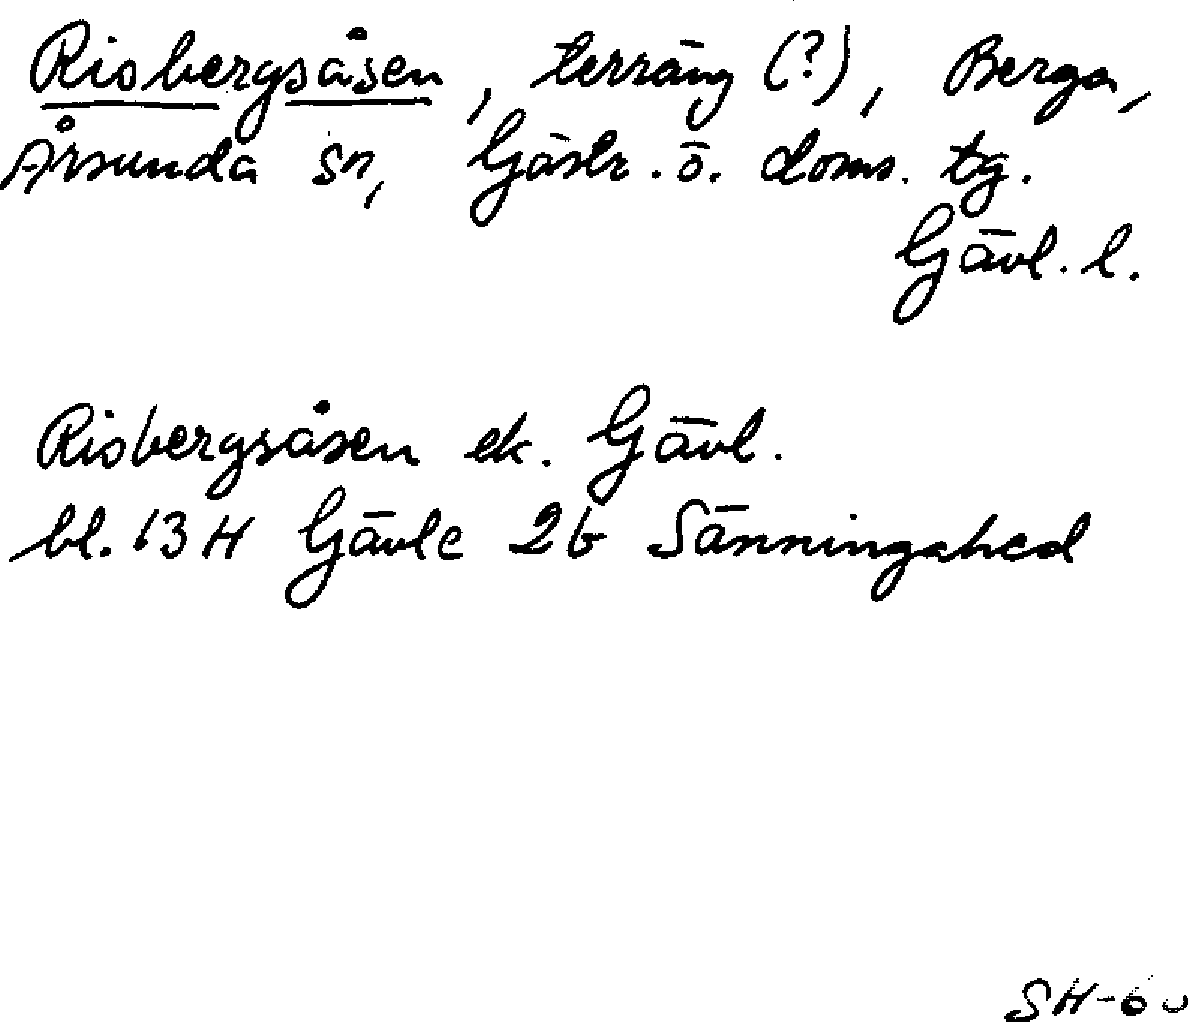 Risbergsåsen, terräng (?), Berga,
Årsunda sn, Gästr. ö. doms. tg.
Gävl. l.
Risbergsåsen ek. Gävl.
bl. 13 H Gävle 2b Sänningahed